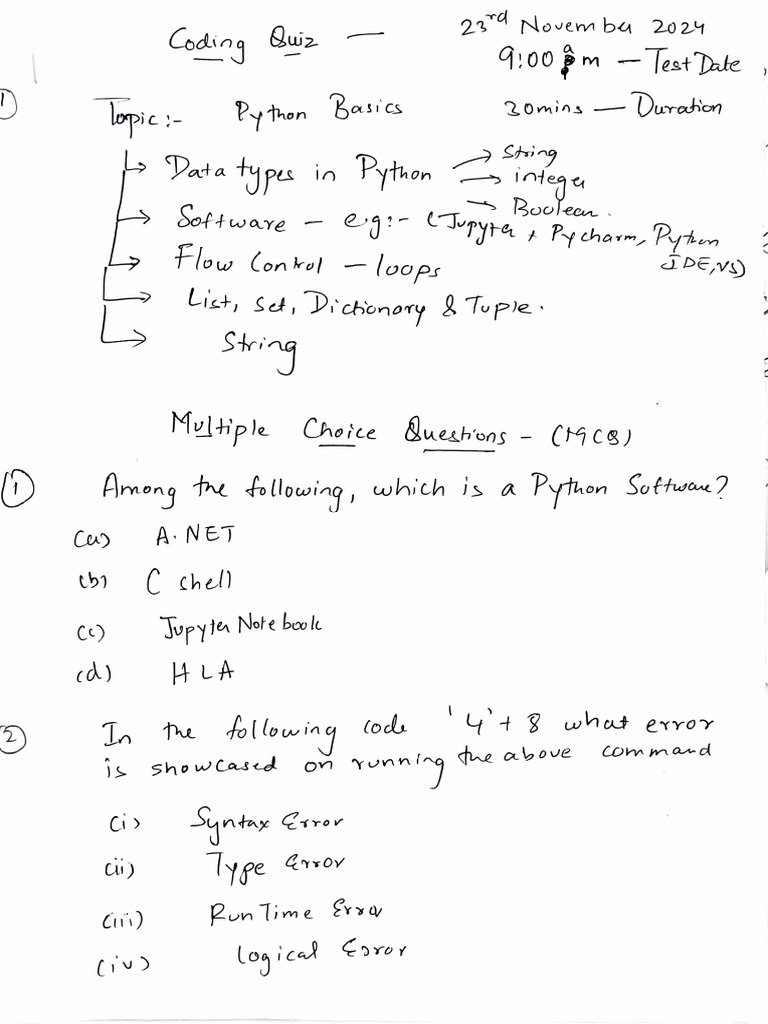 Coding Quiz — 23rd November 2024
9:00 am — Test Date
① Topic:- Python Basics 30mins — Duration
→ Data types in Python → String
→ integer
→ Boolean.
→ Software - e.g:- (Jupyter, Pycharm, Python
IDE, VS)
→ Flow Control - loops
→ List, Set, Dictionory & Tuple.
→ String
Multiple Choice Questions - (MCQ)
① Among the following, which is a Python Software?
(a) A.NET
(b) C shell
(c) Jupyter Notebook
(d) HLA
② In the following code '4'+8 what error
is showcased on running the above command
(i) Syntax Error
(ii) Type Error
(iii) RunTime Error
(iv) Logical Error